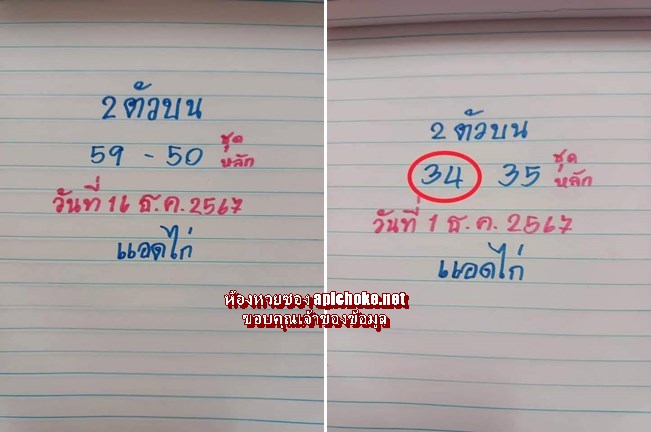 2 ตัวบน
59 - 50 ชุดหลัก
วันที่ 16 ธ.ค. 2567
แอดไก่
2 ตัวบน
34 35 ชุดหลัก
วันที่ 1 ธ.ค. 2567
แอดไก่
ห้องหวยซอง apichoke.net
ขอบคุณเจ้าของข้อมูล